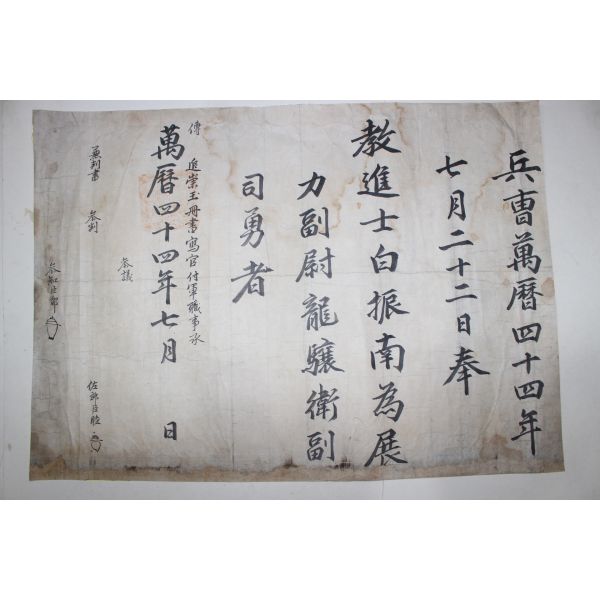 兵曹萬曆四十四年
七月二十二日奉
教進士白振南為展
力副尉龍驤衛副
司勇者
萬曆四十四年七月 日
傳 追崇玉冊書寫官付軍職事承
兼判書 參判
參議
參知臣鄭
佐郎臣